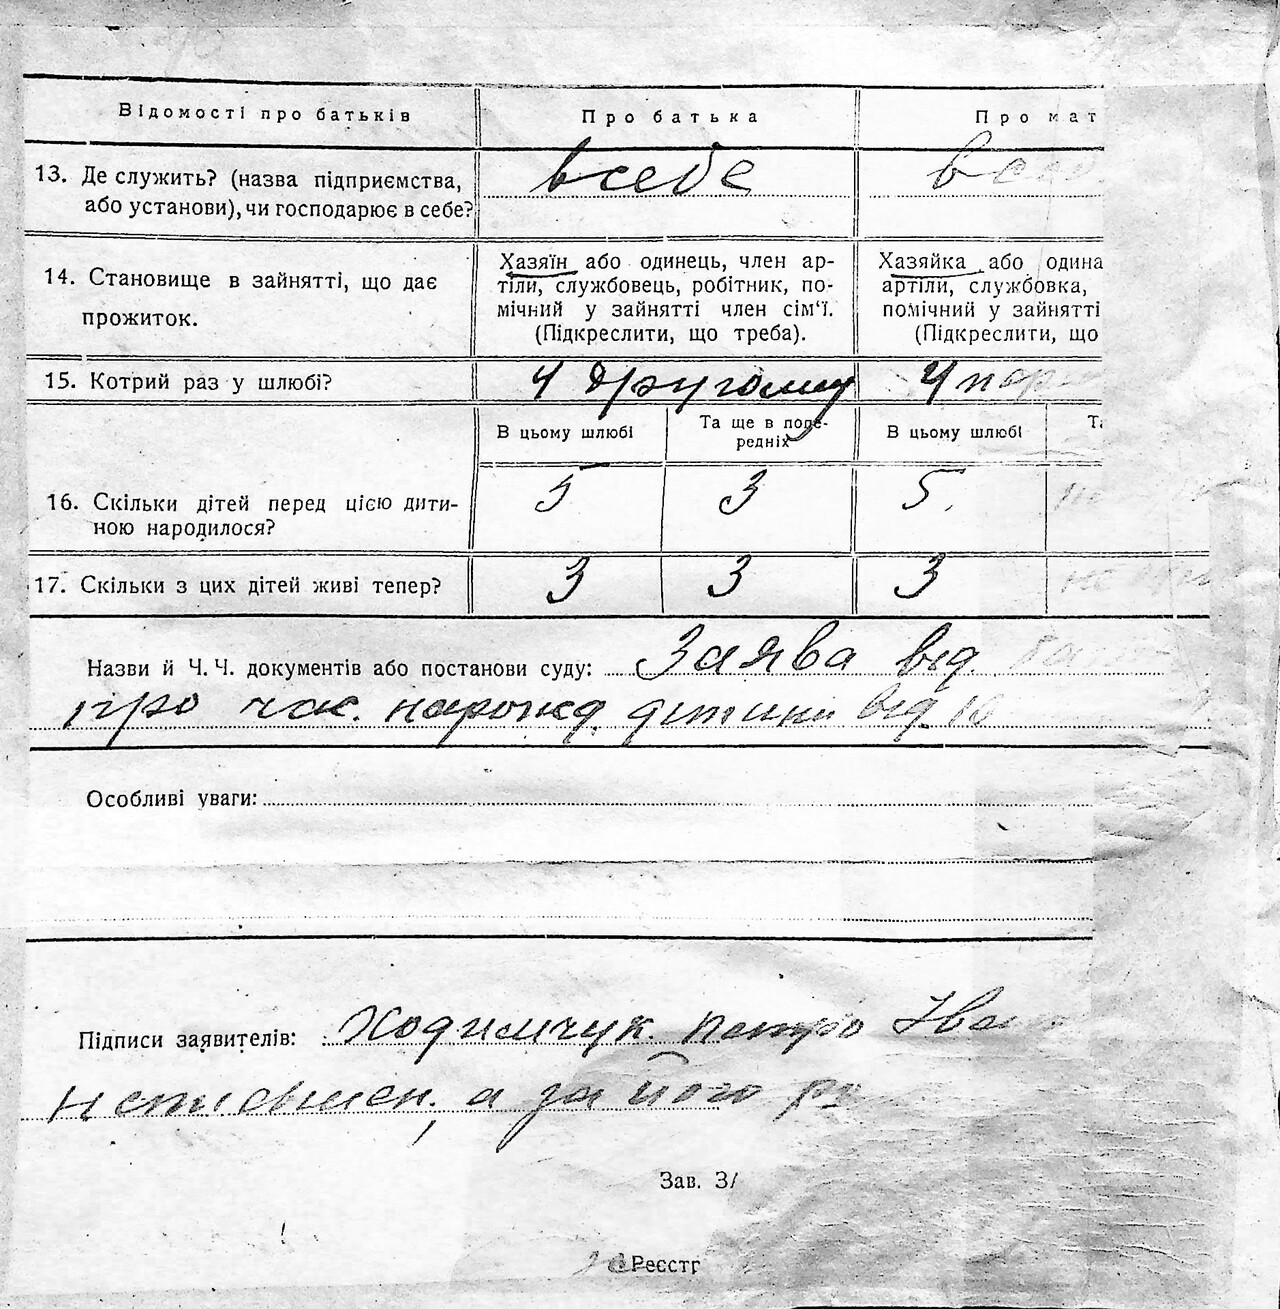 Відомості про батьків Про батька Про мат
13. Де служить? (назва підприємства, або установи), чи господарює в себе?
в себе
14. Становище в зайнятті, що дає прожиток.
Хазяїн або одинець, член ар-
тіли, службовець, робітник, по-
мічний у зайнятті член сім'ї.
(Підкреслити, що треба).
Хазяйка або одина
артіли, службовка,
помічний у зайнятті
(Підкреслити, що
15. Котрий раз у шлюбі? У другому У пер
В цьому шлюбі Та ще в попе-
редніх В цьому шлюбі Та
16. Скільки дітей перед цією дити-
ною народилося? 5 3 5
17. Скільки з цих дітей живі тепер? 3 3 3
Назви й Ч. Ч. документів або постанови суду: Заява від
про час. нарожд. дитини від
Особливі уваги:
Підписи заявителів: Ходимчук Петро Іва
а за його
Зав. З
Реєстр